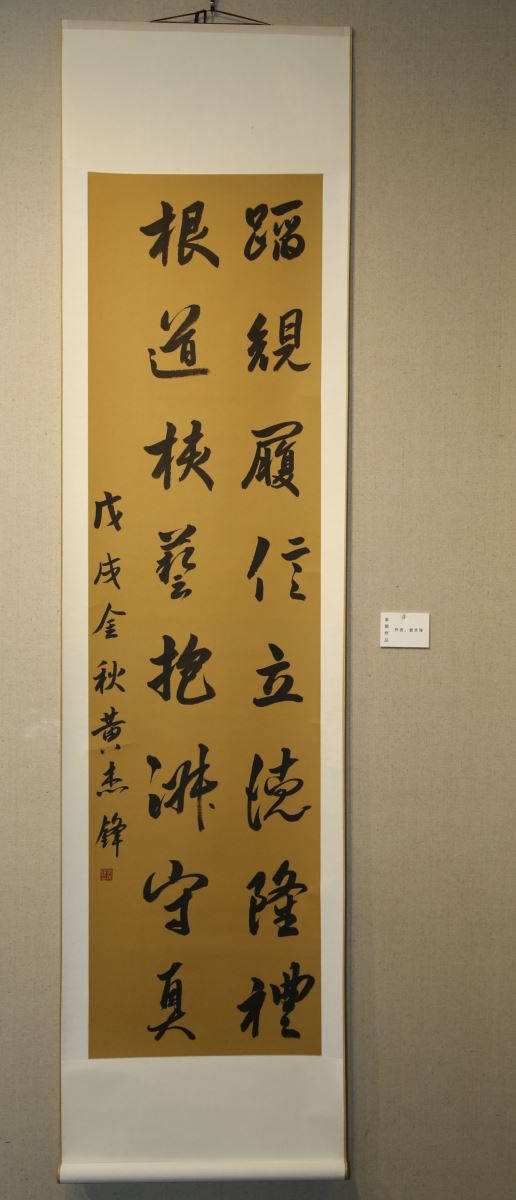 蹈規履信立德隆禮
根道核藝抱淑守真
戊戌金秋黄杰鋒